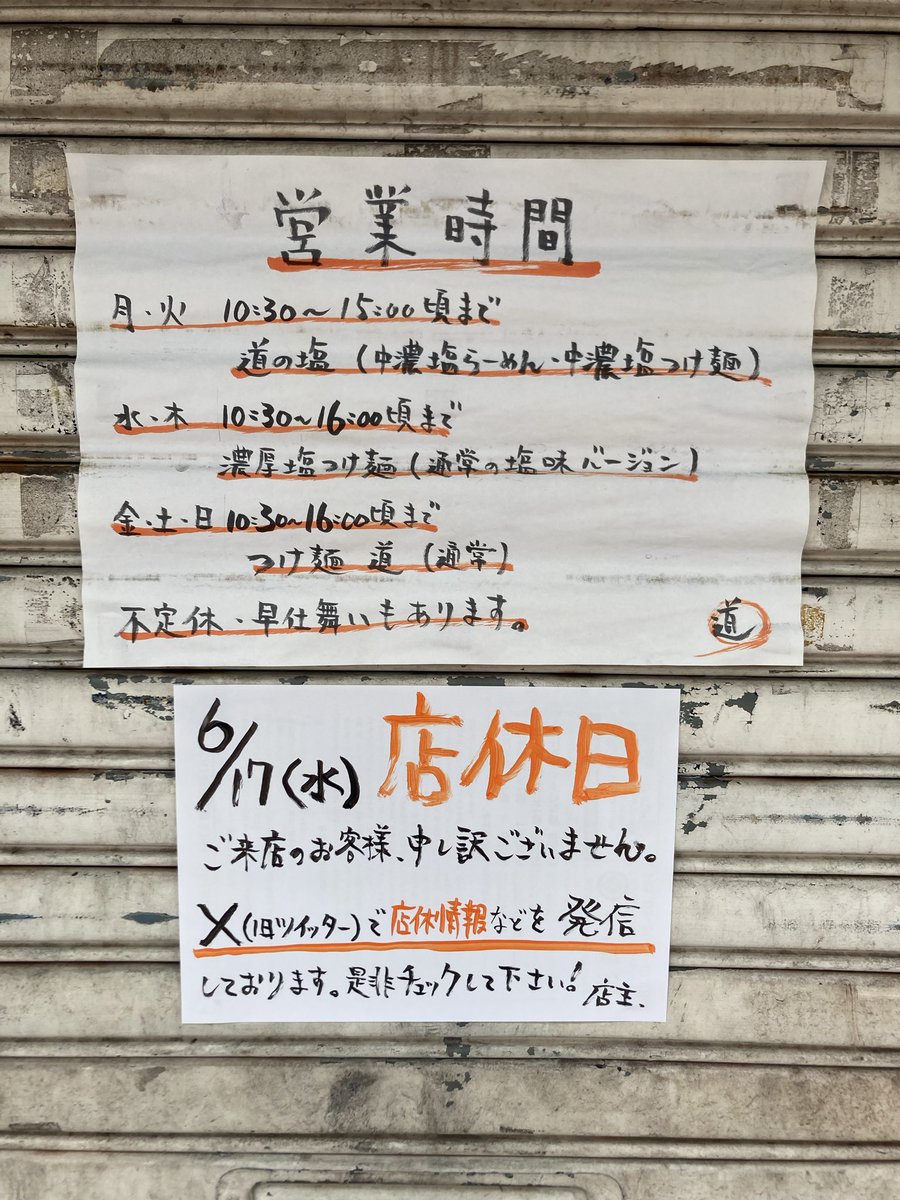 営業時間
月・火 10:30〜15:00頃まで
道の塩 (中濃塩らーめん・中濃塩つけ麺)
水・木 10:30〜16:00頃まで
濃厚塩つけ麺 (通常の塩味バージョン)
金・土・日 10:30〜16:00頃まで
つけ麺 道 (通常)
不定休・早仕舞いもあります。
道
6/17(水) 店休日
ご来店のお客様、申し訳ございません。
X(旧ツイッター)で店休情報などを発信
しております。是非チェックして下さい! 店主、